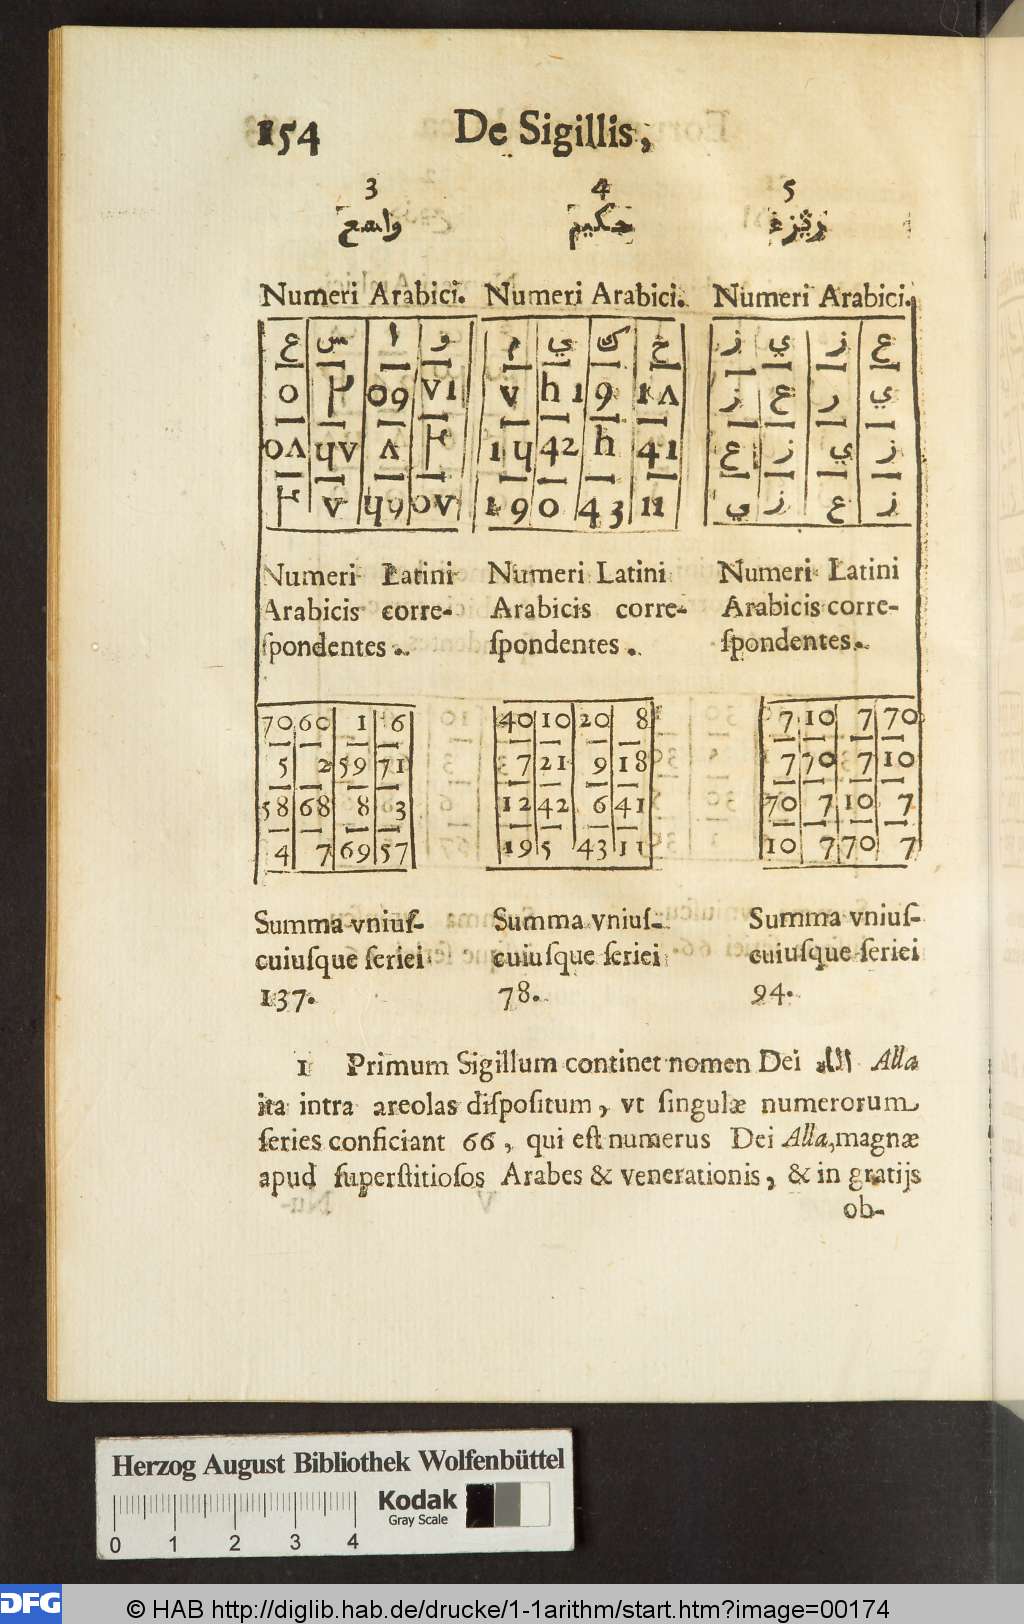 154 De Sigillis,
3 4 5
واسع حكيم
Numeri Arabici. Numeri Arabici. Numeri Arabici.
ع س ا و م ي ك ح ز ي ز ع
Numeri Latini Numeri Latini Numeri Latini
Arabicis corre- Arabicis corre- Arabicis corre-
ſpondentes. ſpondentes. ſpondentes.
70 60 1 6 40 10 20 8 7 10 7 70
5 2 59 71 7 21 9 18 7 70 7 10
58 68 8 3 12 42 6 41 70 7 10 7
4 7 69 57 19 5 43 11 10 7 70 7
Summa vniuſ- Summa vniuſ- Summa vniuſ-
cuiuſque ſeriei cuiuſque ſeriei cuiuſque ſeriei
137. 78. 94.
1 Primum Sigillum continet nomen Dei الله Alla
ita intra areolas diſpoſitum, vt ſingulæ numerorum
ſeries conficiant 66, qui eſt numerus Dei Alla, magnæ
apud ſuperſtitioſos Arabes & venerationis, & in gratijs
ob-
Herzog August Bibliothek Wolfenbüttel
Kodak
Gray Scale
0 1 2 3 4
DFG © HAB http://diglib.hab.de/drucke/1-1arithm/start.htm?image=00174